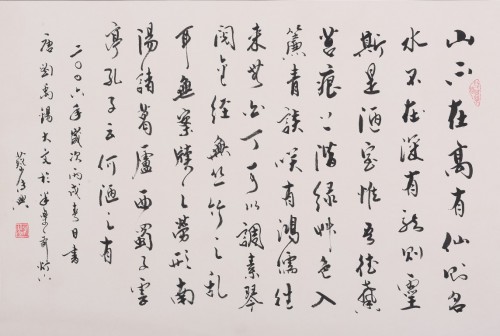 山不在高有仙則名
水不在深有龍則靈
斯是陋室惟吾德馨
苔痕上階綠艸色入
簾青談笑有鴻儒往
來無白丁可以調素琴
閱金經無絲竹之亂
耳無案牘之勞形南
陽諸葛廬西蜀子雲
亭孔子云何陋之有
二〇〇六年歲次丙戌春日書
唐劉禹錫大文於半